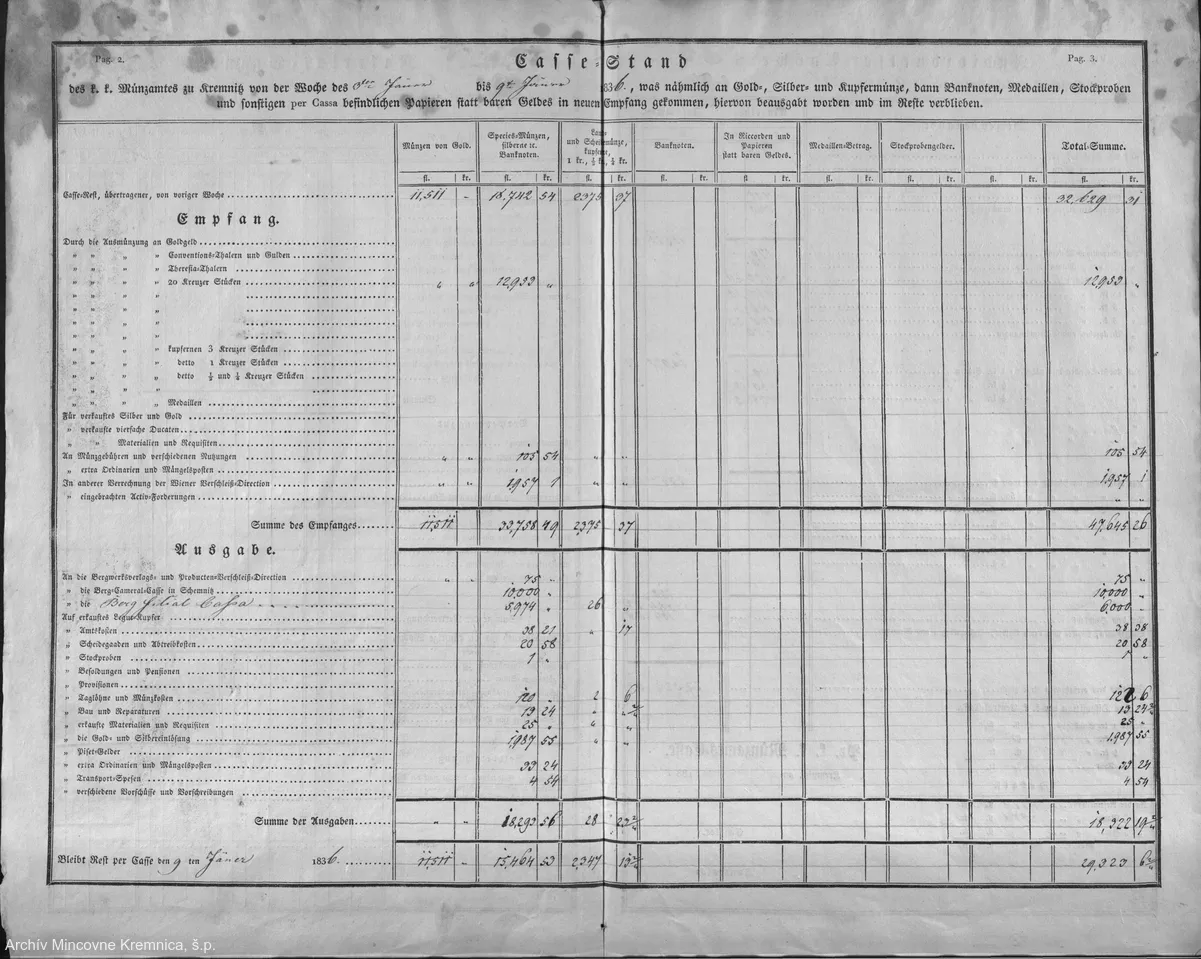 Pag. 2.
Casse-Stand
Pag. 3.
des k. k. Münzamtes zu Kremnitz von der Woche des 3ten Jäner bis 9t Jänner 836., was nähmlich an Gold-, Silber- und Kupfermünze, dann Banknoten, Medaillen, Stockproben
und sonstigen per Cassa befindlichen Papieren statt baren Geldes in neuen Empfang gekommen, hiervon beausgabt worden und im Reste verblieben.
Münzen von Gold. Species-Münzen, silberne ꝛc. Banknoten. und Scheidemünze, kupferne, 1 kr., ½ kr., ¼ kr. Banknoten. In Riccorden und Papieren statt baren Geldes. Medaillen-Betrag. Stockprobengelder. Total-Summe.
fl. kr. fl. kr. fl. kr. fl. kr. fl. kr. fl. kr. fl. kr. fl. kr.
Casse-Rest, übertragener, von voriger Woche 11,511 - 18,742 54 2375 37 32,629 31
Empfang.
Durch die Ausmünzung an Goldgeld
" " " " Conventions-Thalern und Gulden
" " " " Theresia-Thalern
" " " " 20 Kreuzer Stücken " " 12,953 " 12,953 "
" " " "
" " " "
" " " "
" " " "
" " " " kupfernen 3 Kreuzer Stücken
" " " " detto 1 Kreuzer Stücken
" " " " detto ½ und ¼ Kreuzer Stücken
" " " "
" " " " Medaillen
Für verkauftes Silber und Gold
" verkaufte vierfache Ducaten
" " Materialien und Requisiten
An Münzgebühren und verschiedenen Nutzungen " " 105 54 " " 105 54
" extra Ordinarien und Mängelsposten
In anderer Verrechnung der Wiener Verschleiß-Direction " " 1,957 1 " " 1,957 1
" eingebrachten Activ-Forderungen " "
Summe des Empfanges 11,511 33,758 49 2375 37 47,645 26
Ausgabe.
An die Bergwerksverlags- und Producten-Verschleiß-Direction " " 75 " 75 "
" die Berg-Cameral-Casse in Schemnitz 10,000 " 10,000 "
" die Berg filial Cassa 5,974 " 26 " 6,000 -
Auf erkauftes Legur-Kupfer
" Amtskosten 38 21 " 17 38 38
" Scheidegaaden und Abtreibkosten 20 58 20 58
" Stockproben 1 " 1 "
" Besoldungen und Pensionen
" Provisionen
" Taglöhne und Münzkosten 120 " 2 6 122 6
" Bau und Reparaturen 13 24 " " 2/4 13 24 2/4
" erkaufte Materialien und Requisiten 25 " " 25 "
" die Gold- und Silbereinlösung 1,987 55 " " 1,987 55
" Piset-Gelder
" extra Ordinarien und Mängelsposten 33 24 33 24
" Transport-Spesen 4 54 4 54
" verschiedene Vorschüsse und Vorschreibungen
Summe der Ausgaben " " 18,293 56 28 23 2/4 18,322 19 2/4
Bleibt Rest per Casse den 9 ten Jäner 1836. 11511 - 15,464 53 2,347 13 2/4 29,323 6 2/4
Archív Mincovne Kremnica, š.p.